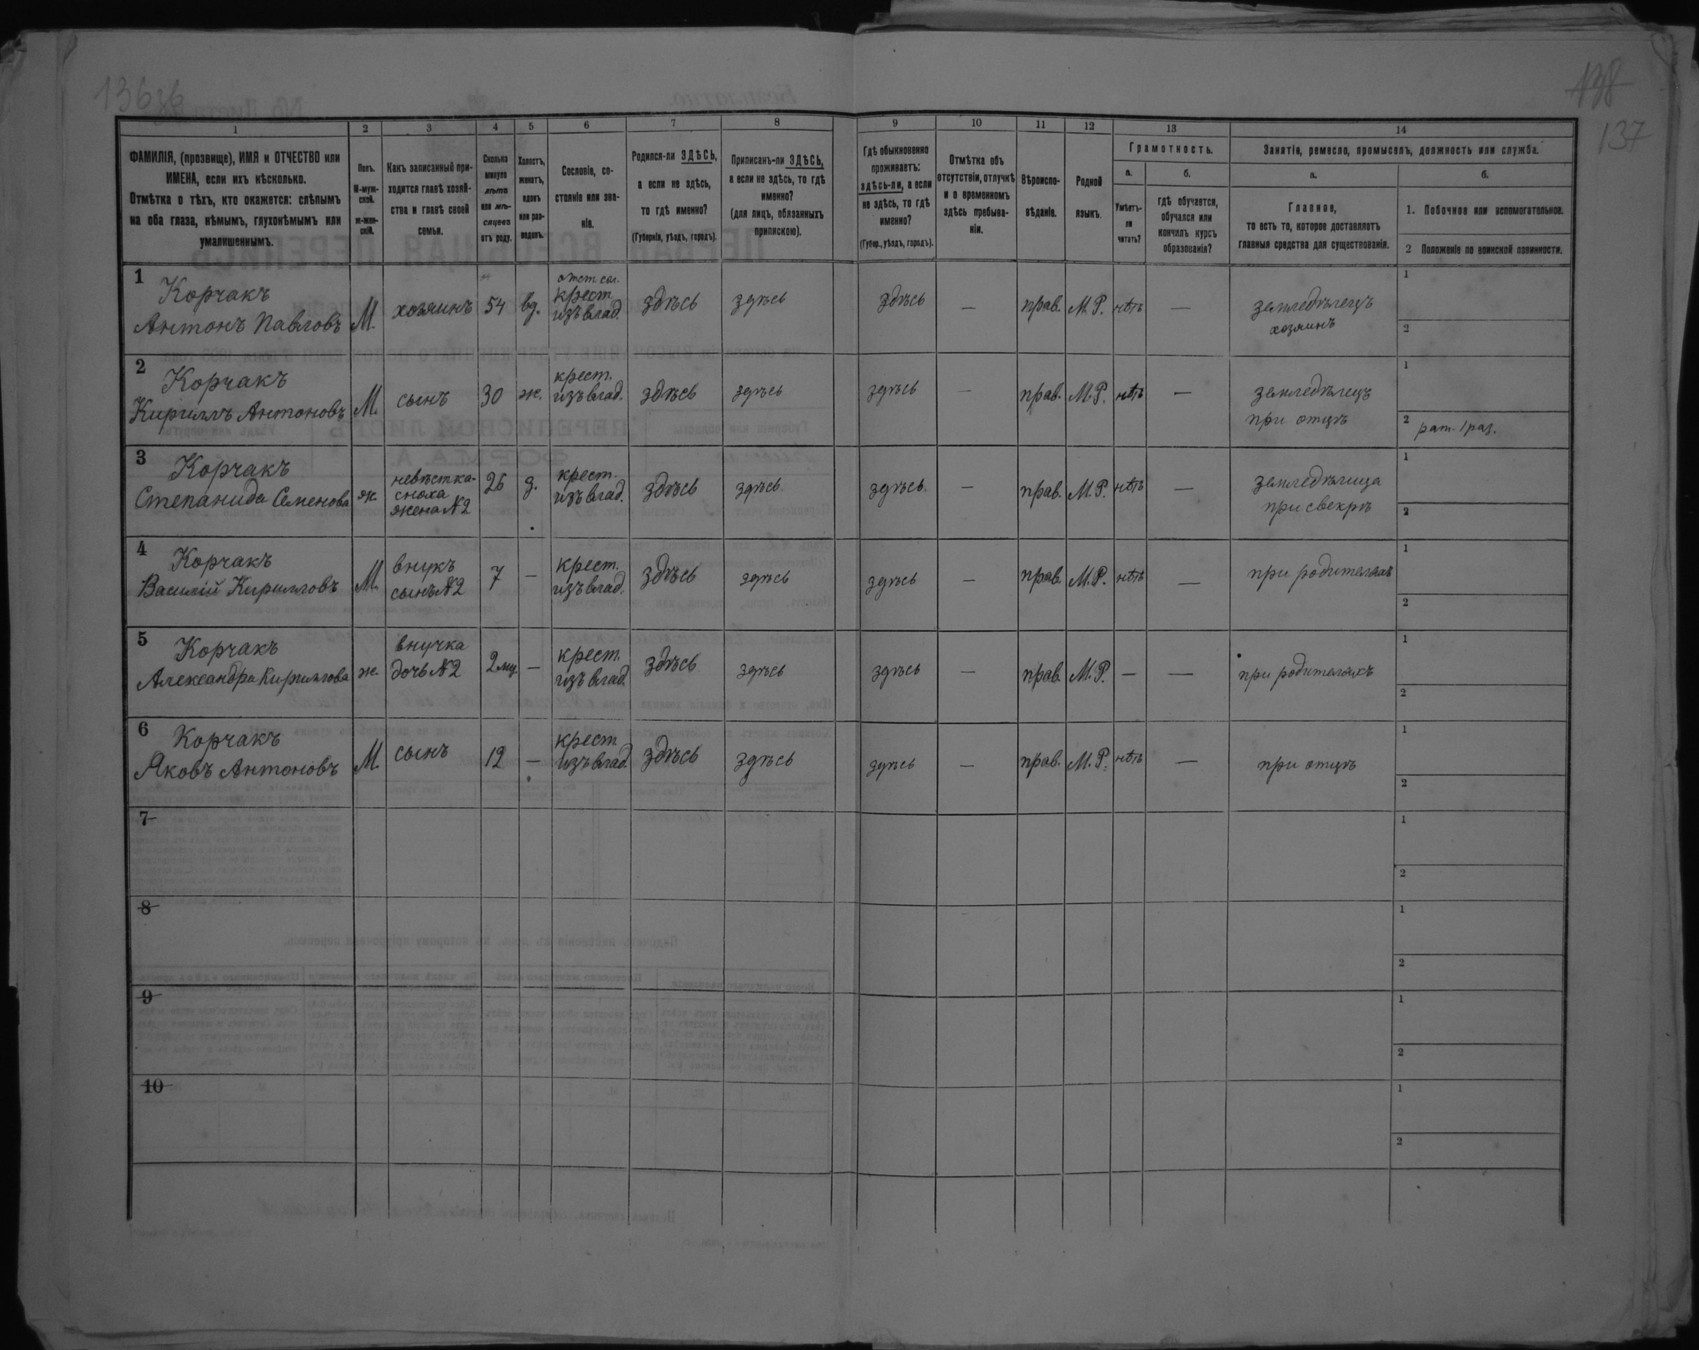 136об
138
137
1
2
3
4
5
6
7
8
9
10
11
12
13
14
ФАМИЛІЯ, (прозвище), ИМЯ и ОТЧЕСТВО или
ИМЕНА, если ихъ нѣсколько.
Отмѣтка о тѣхъ, кто окажется: слѣпымъ
на оба глаза, нѣмымъ, глухонѣмымъ или
умалишеннымъ.
Полъ.
М-муж-
ской.
Ж-жен-
скій.
Какъ записанный при-
ходится главѣ хозяй-
ства и главѣ своей
семьи.
Сколько
минуло
лѣтъ
или мѣ-
сяцевъ
отъ роду.
Холостъ,
женатъ,
вдовъ
или раз-
веденъ.
Сословіе, со-
стояніе или зва-
ніе.
Родился-ли ЗДѢСЬ,
а если не здѣсь,
то гдѣ именно?
(Губернія, уѣздъ, городъ).
Приписанъ-ли ЗДѢСЬ,
а если не здѣсь, то гдѣ
именно?
(для лицъ, обязанныхъ
припискою).
Гдѣ обыкновенно
проживаетъ:
здѣсь-ли, а если
не здѣсь, то гдѣ
именно?
(Губер., уѣздъ, городъ).
Отмѣтка объ
отсутствіи, отлучкѣ
и о временномъ
здѣсь пребыва-
ніи.
Вѣроиспо-
вѣданіе.
Родной
языкъ.
Грамотность.
а.
Умѣетъ-
ли
читать?
б.
гдѣ обучается,
обучался или
кончилъ курсъ
образованія?
Занятіе, ремесло, промыселъ, должность или служба.
а.
Главное,
то есть то, которое доставляетъ
главныя средства для существованія.
б.
1. Побочное или вспомогательное.
2 Положеніе по воинской повинности.
1
Корчакъ
Антонъ Павловъ
М.
хозяинъ
54
вд.
крест.
изъ влад.
здѣсь
здѣсь
здѣсь
—
прав.
М.Р.
нѣтъ
—
земледѣлецъ
хозяинъ
1
2
2
Корчакъ
Кириллъ Антоновъ
М.
сынъ
30
ж.
крест.
изъ влад.
здѣсь
здѣсь
здѣсь
—
прав.
М.Р.
нѣтъ
—
земледѣлецъ
при отцѣ
1
2 рат. 1 раз.
3
Корчакъ
Степанида Семенова
ж.
невѣстка-
сноха
жена №2
26
з.
крест.
изъ влад.
здѣсь
здѣсь
здѣсь
—
прав.
М.Р.
нѣтъ
—
земледѣлица
при свекрѣ
1
2
4
Корчакъ
Василій Кирилловъ
М.
внукъ
сынъ №2
7
—
крест.
изъ влад.
здѣсь
здѣсь
здѣсь
—
прав.
М.Р.
нѣтъ
—
при родителяхъ
1
2
5
Корчакъ
Александра Кириллова
ж.
внучка
дочь №2
2 мц.
—
крест.
изъ влад.
здѣсь
здѣсь
здѣсь
—
прав.
М.Р.
—
—
при родителяхъ
1
2
6
Корчакъ
Яковъ Антоновъ
М.
сынъ
12
—
крест.
изъ влад.
здѣсь
здѣсь
здѣсь
—
прав.
М.Р.
нѣтъ
—
при отцѣ
1
2
7
1
2
8
1
2
9
1
2
10
1
2